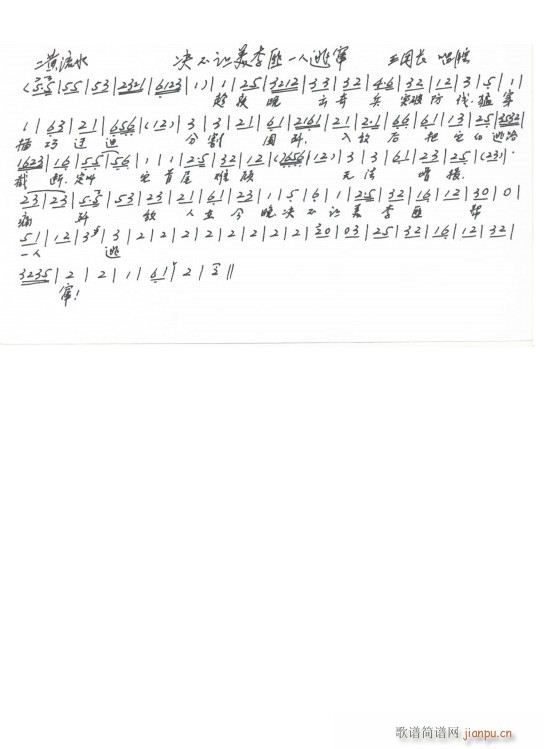 二黄流水 决不让美李匪一人逃窜 王团长 唱腔
(5·5|55|53|2321|6123|1)|1|25|3212|33|32|4·6|32|12|3|5|1|
趁 夜 晚 出 奇 兵 突破 防 线 猛 穿
1|63|21|656|(12)|3|3|21|61|2161|21|2·1|66|61|13|25|3532|
插 巧 迂 迴 分 割 围 歼 入 敌 后 把 它 的 逃路
1623|16|55|56|1|1|25|32|12|(7656|12)|3|3|61|23|25|(23)|
截 断 定叫 它 首 尾 难 顾 无 法 增 援
23|23|5·5|53|23|21|61|23|1|5|6|1|25|32|16|12|30|0|
痛 歼 敌 人 在 今 晚 决 不 让 美 李 匪 帮
51|12|3|3|2|2|2|2|2|2|2|2|30|03|25|32|16|12|32|
一人 逃
3235|2|2|1|61|2|2‖
窜!